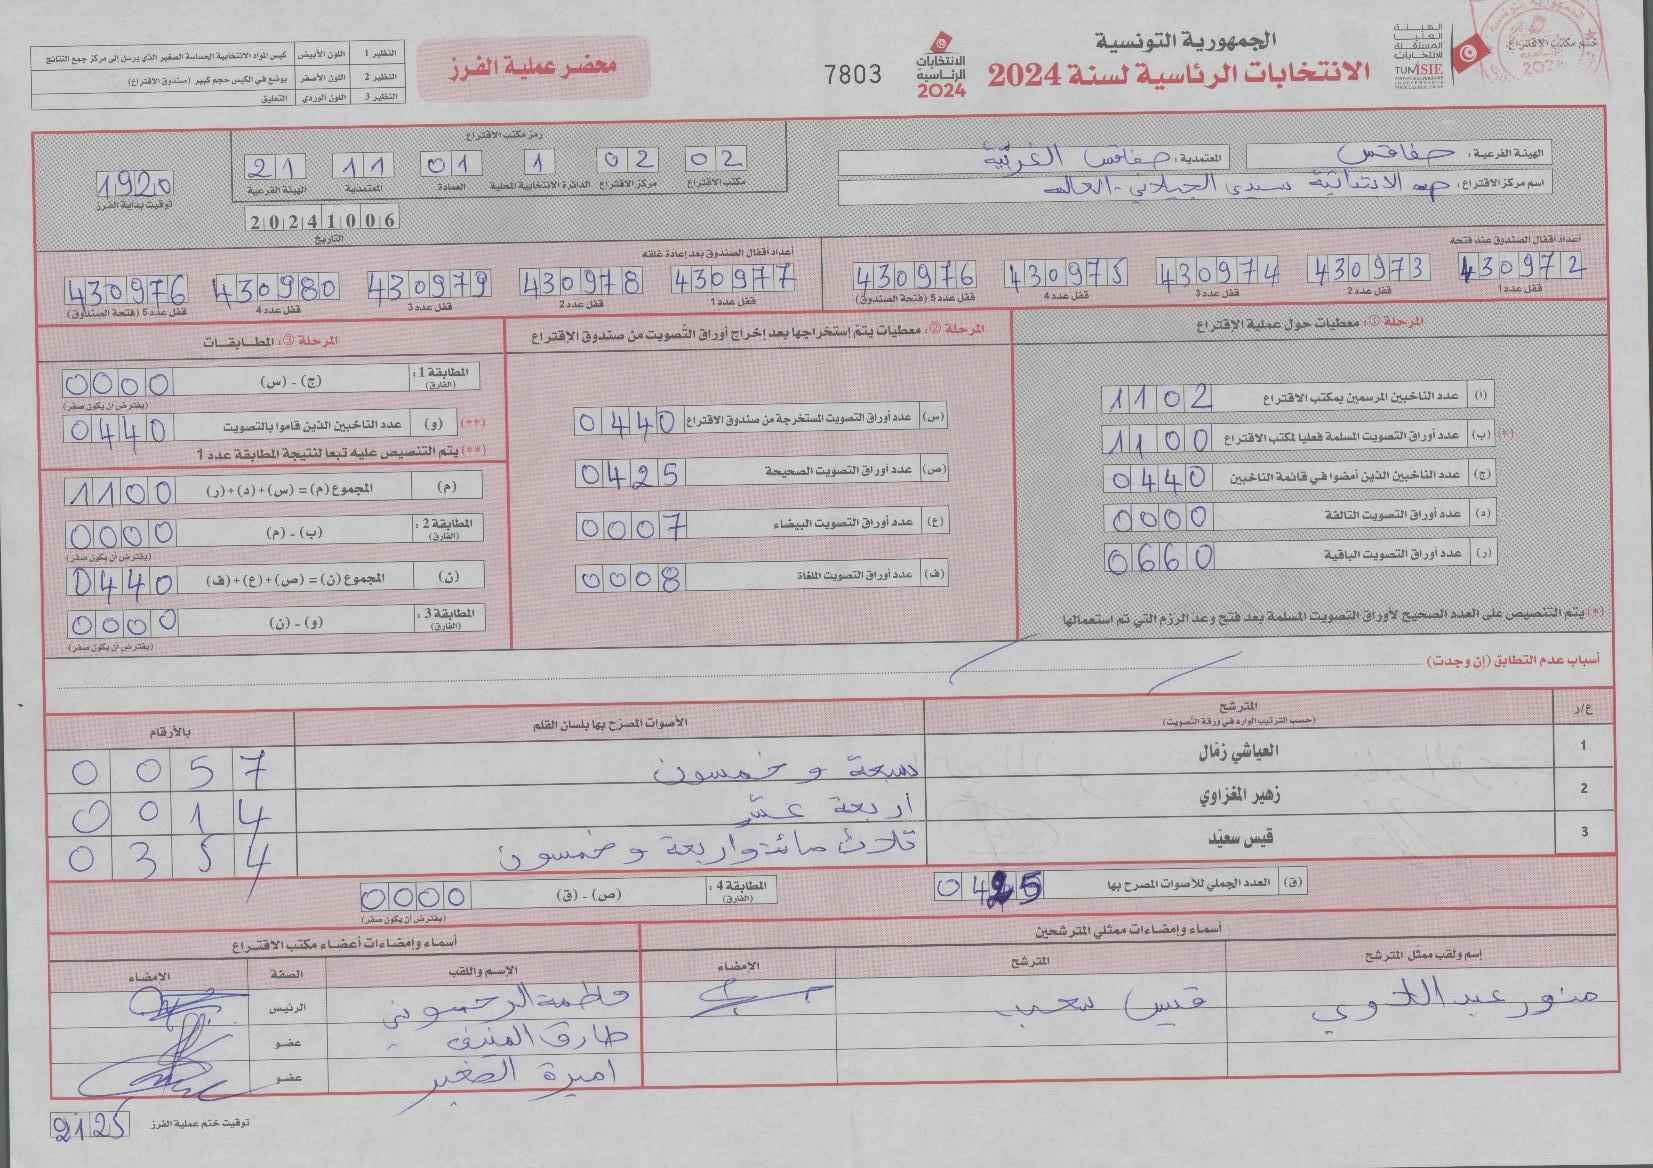 الجمهورية التونسية
الانتخابات الرئاسية لسنة 2024
الهيئة
العليا
المستقلة
للانتخابات
TUNISIE
ختم مكتب الاقتراع
الانتخابات
الرئاسية
2024
7803
محضر عملية الفرز
النظير 1 اللون الأبيض كيس المواد الانتخابية الحساسة الصغير الذي يرسل إلى مركز جمع النتائج
النظير 2 اللون الأصفر يوضع في الكيس حجم كبير (صندوق الاقتراع)
النظير 3 اللون الوردي التعليق
الهيئة الفرعية: صفاقس المعتمدية: صفاقس الغربية
اسم مركز الاقتراع: الابتدائية سيدي الجيلاني
رمز مكتب الاقتراع
02 02 1 01 11 21
مكتب الاقتراع مركز الاقتراع الدائرة الانتخابية المحلية العمادة المعتمدية الهيئة الفرعية
20241006
التاريخ
1920
توقيت بداية الفرز
أعداد اقفال الصندوق عند فتحه
430972 430973 430974 430975 430976
قفل عدد 1 قفل عدد 2 قفل عدد 3 قفل عدد 4 قفل عدد 5 (فتحة الصندوق)
أعداد اقفال الصندوق بعد إعادة غلقه
430977 430978 430979 430980 430976
قفل عدد 1 قفل عدد 2 قفل عدد 3 قفل عدد 4 قفل عدد 5 (فتحة الصندوق)
المرحلة ①: معطيات حول عملية الاقتراع
(ا) عدد الناخبين المرسمين بمكتب الاقتراع 1102
(*) (ب) عدد أوراق التصويت المسلمة فعليا لمكتب الاقتراع 1100
(ج) عدد الناخبين الذين أمضوا في قائمة الناخبين 0440
(د) عدد أوراق التصويت التالفة 0000
(ر) عدد أوراق التصويت الباقية 0660
(*) يتم التنصيص على العدد الصحيح لأوراق التصويت المسلمة بعد فتح وعد الرزم التي تم استعمالها
المرحلة ②: معطيات يتم إستخراجها بعد إخراج أوراق التصويت من صندوق الإقتراع
(س) عدد أوراق التصويت المستخرجة من صندوق الاقتراع 0440
(ص) عدد أوراق التصويت الصحيحة 0425
(ع) عدد أوراق التصويت البيضاء 0007
(ف) عدد أوراق التصويت الملغاة 0008
المرحلة ③: المطابقات
المطابقة 1: (الفارق) (ج) - (س) 0000
(يفترض أن يكون صفر)
(**) (و) عدد الناخبين الذين قاموا بالتصويت 0440
(**) يتم التنصيص عليه تبعا لنتيجة المطابقة عدد 1
(م) المجموع (م) = (س)+(د)+(ر) 1100
المطابقة 2: (الفارق) (ب) - (م) 0000
(يفترض أن يكون صفر)
(ن) المجموع (ن) = (ص)+(ع)+(ف) 0440
المطابقة 3: (الفارق) (و) - (ن) 0000
(يفترض أن يكون صفر)
أسباب عدم التطابق (إن وجدت)
ع/ر المترشح الأصوات المصرح بها بلسان القلم بالأرقام
(حسب الترتيب الوارد في ورقة التصويت)
1 العياشي زمال سبعة و خمسون 0057
2 زهير المغزاوي أربعة عشر 0014
3 قيس سعيد ثلاث مائة واربعة و خمسون 0354
(ق) العدد الجملي للأصوات المصرح بها 0425
المطابقة 4: (الفارق) (ص) - (ق) 0000
(يفترض أن يكون صفر)
أسماء وإمضاءات ممثلي المترشحين
إسم ولقب ممثل المترشح المترشح الامضاء
منور عبد اللاوي قيس سعيد
أسماء وإمضاءات أعضاء مكتب الاقتراع
الإسم واللقب الصفة الامضاء
فاطمة الرحموني الرئيس
طارق عضو
اميرة الصغير عضو
توقيت ختم عملية الفرز 2125